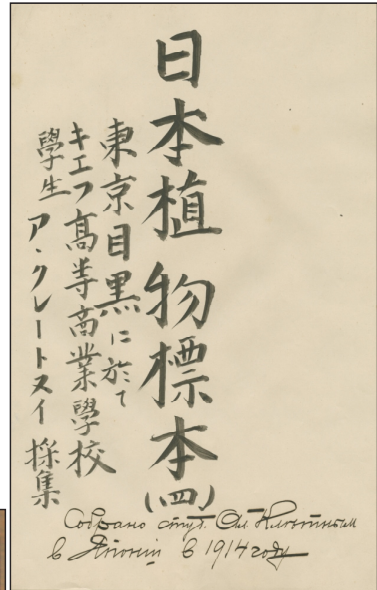 日本植物標本(四)
東京目黒に於て
キエフ髙等商業學校
學生 ア・クレートヌイ 採集
Собрано студ. Ал.
в Японіи в 1914 году